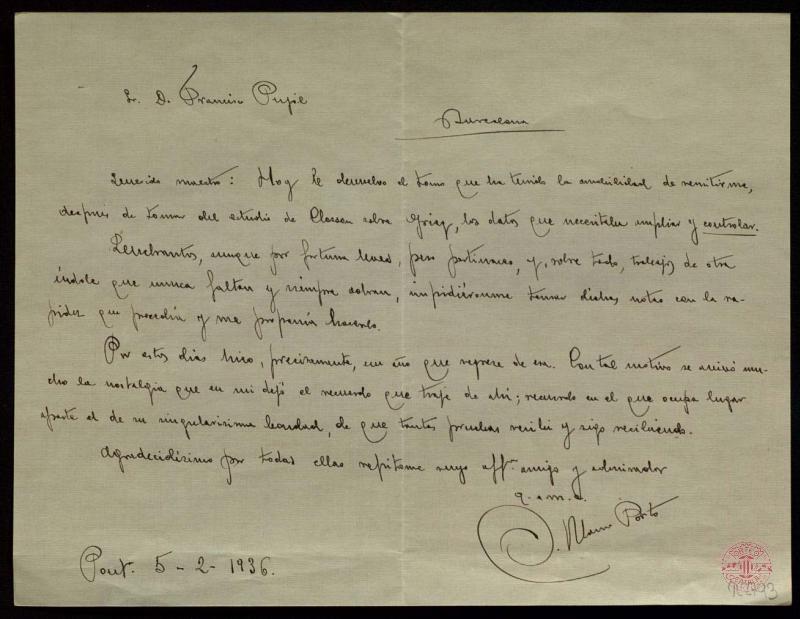 Sr. D. Francisco Pujol
Barcelona
Querido maestro: Hoy le devuelvo el tomo que ha tenido la amabilidad de remitirme,
después de tomar del estudio de Closson sobre Grieg, los datos que necesitaba ampliar y controlar.
Quebrantos, aunque por fortuna leves, pero pertinaces, y, sobre todo, trabajos de otra
índole que nunca faltan y siempre sobran, impidiéronme tomar dichas notas con la ra-
pidez que procedía y me proponía hacerlo.
Por estos días hizo, precisamente, un año que regresé de esa. Con tal motivo se avivó mu-
cho la nostalgia que en mi dejó el recuerdo que traje de ahí; recuerdo en el que ocupa lugar
aparte el de su singularísima bondad, de que tantas pruebas recibí y sigo recibiendo.
Agradecidísimo por todas ellas repítome suyo aff. amigo y admirador
q. e. m. e.
Blanco Porto
Pont. 5-2-1936.